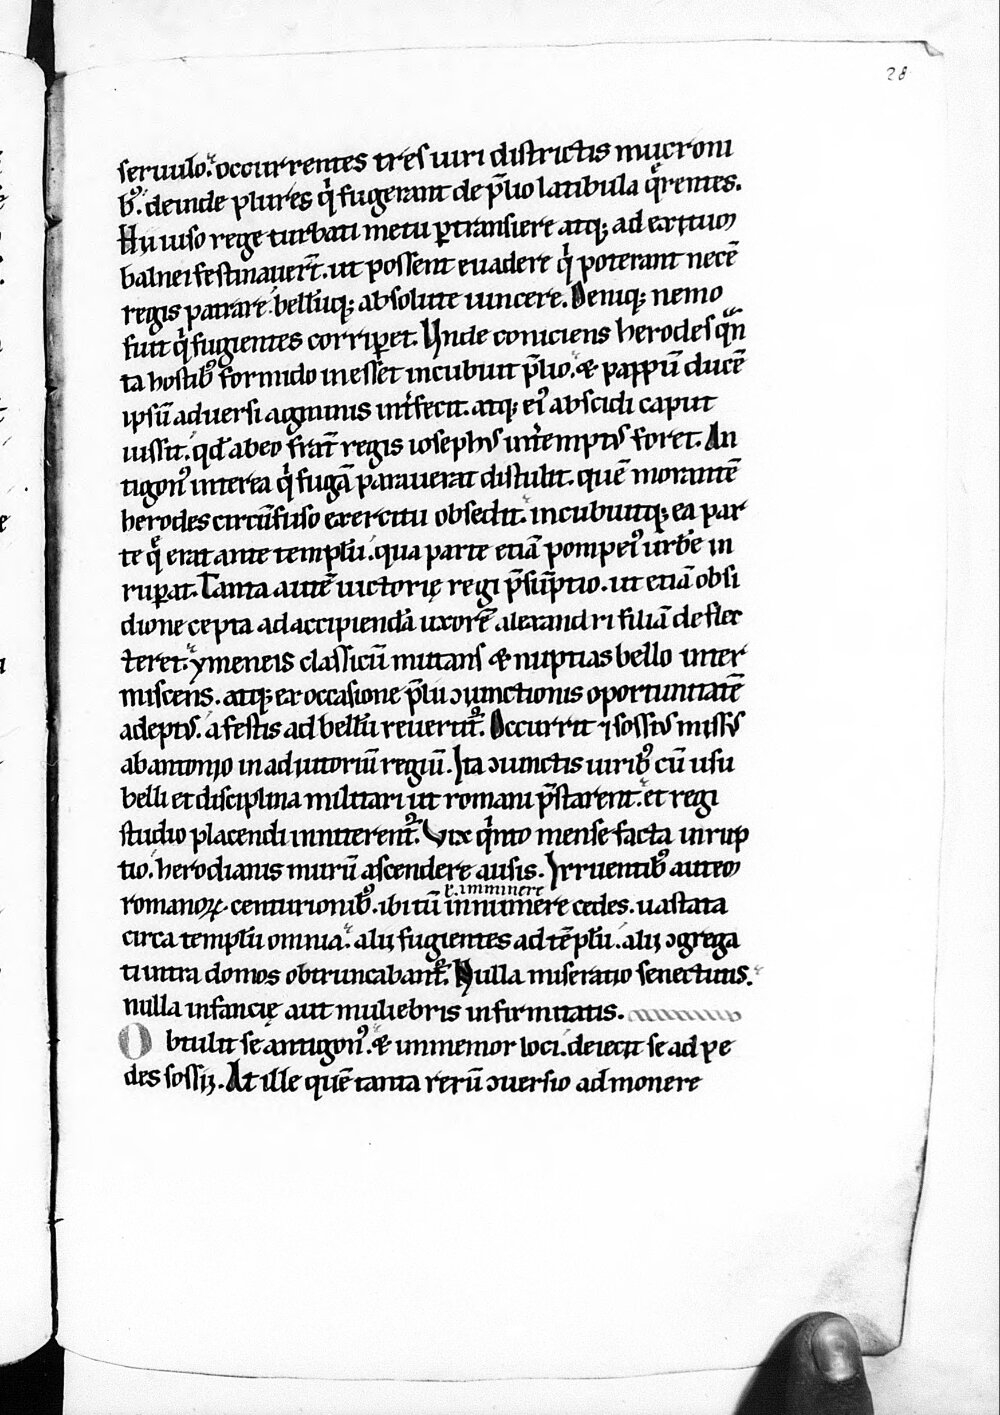 28
seruulo. occurrentes tres uiri districtis mucroni
bꝰ. deinde plures qͥ fugerant de p̄lio latibula q̄rentes.
Hij uiso rege turbati metu ꝑtransiere atq; ad exitum
balnei festinauer̄t. ut possent euadere qͥ poterant necē
regis patrare. belliuq; absolute uincere. Deniq; nemo
fuit qͥ fugientes corriꝑet. Vnde coniciens herodes qͣn
ta hostibꝰ formido inesset incubuit p̄lio. & pappū ducē
ipsū aduersi agminis int̓fecit. atq; eiꝰ abscidi caput
iussit. qd̄ ab eo frat̄ regis iosephꝰ int̓emptꝰ foret. An
tigonꝰ interea qͥ fugā parauerat distulit. quē morantē
herodes circūfuso exercitu obsedit. incubuitq; ea par
te q̄ erat ante templū. qua parte etiā pompeiꝰ urbē in
ruꝑat. Tanta autē uictorię regi p̄sūptio. ut etiā obsi
dione cepta ad accipiendā uxorē alexandri filiā deflec
teret. ymeneis classicū mittans & nuptias bello inter
miscens. atq; ex occasione p̄lii ↄiunctionis oportunitatē
adeptꝰ. a festis ad bellū reuertit᷑. Occurrit ⁊ sossiꝰ missꝰ
ab antonio in adiutoriū regiū. Ita ↄiunctis uiribꝰ cū usu
belli et disciplina militari ut romani p̄starent. et regi
studio placendi inniterent᷑. Vix qͥnto mense facta inrup
tio. herodianis murū ascendere ausis. Irruentibꝰ autem
ł. imminere
romanoꝝ centurionibꝰ. ibi tū innumere cedes. uastata
circa templū omnia. alij fugientes ad tēplū. alij ↄgrega
ti intra domos obtruncabant᷑. Nulla miseratio senectutis.
nulla infancię aut muliebris infirmitatis.
Obtulit se antigonꝰ. & inmemor loci. deiecit se ad pe
des sossij. At ille quē tanta rerū ↄuersio admonere